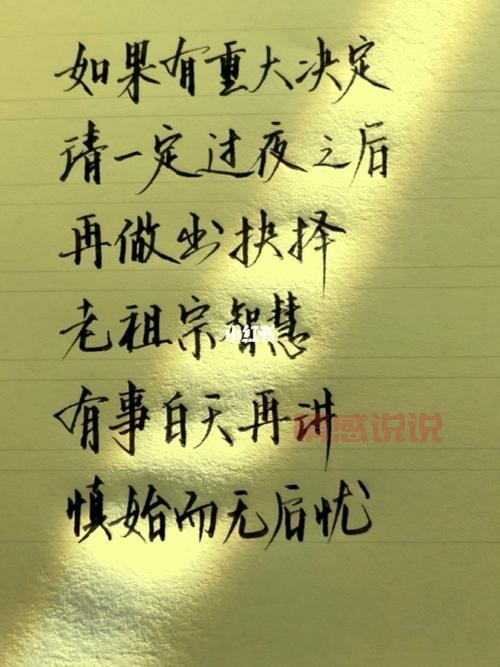 如果有重大决定
请一定过夜之后
再做出抉择
老祖宗智慧
小红书
有事白天再讲
情感说说
慎始而无后忧